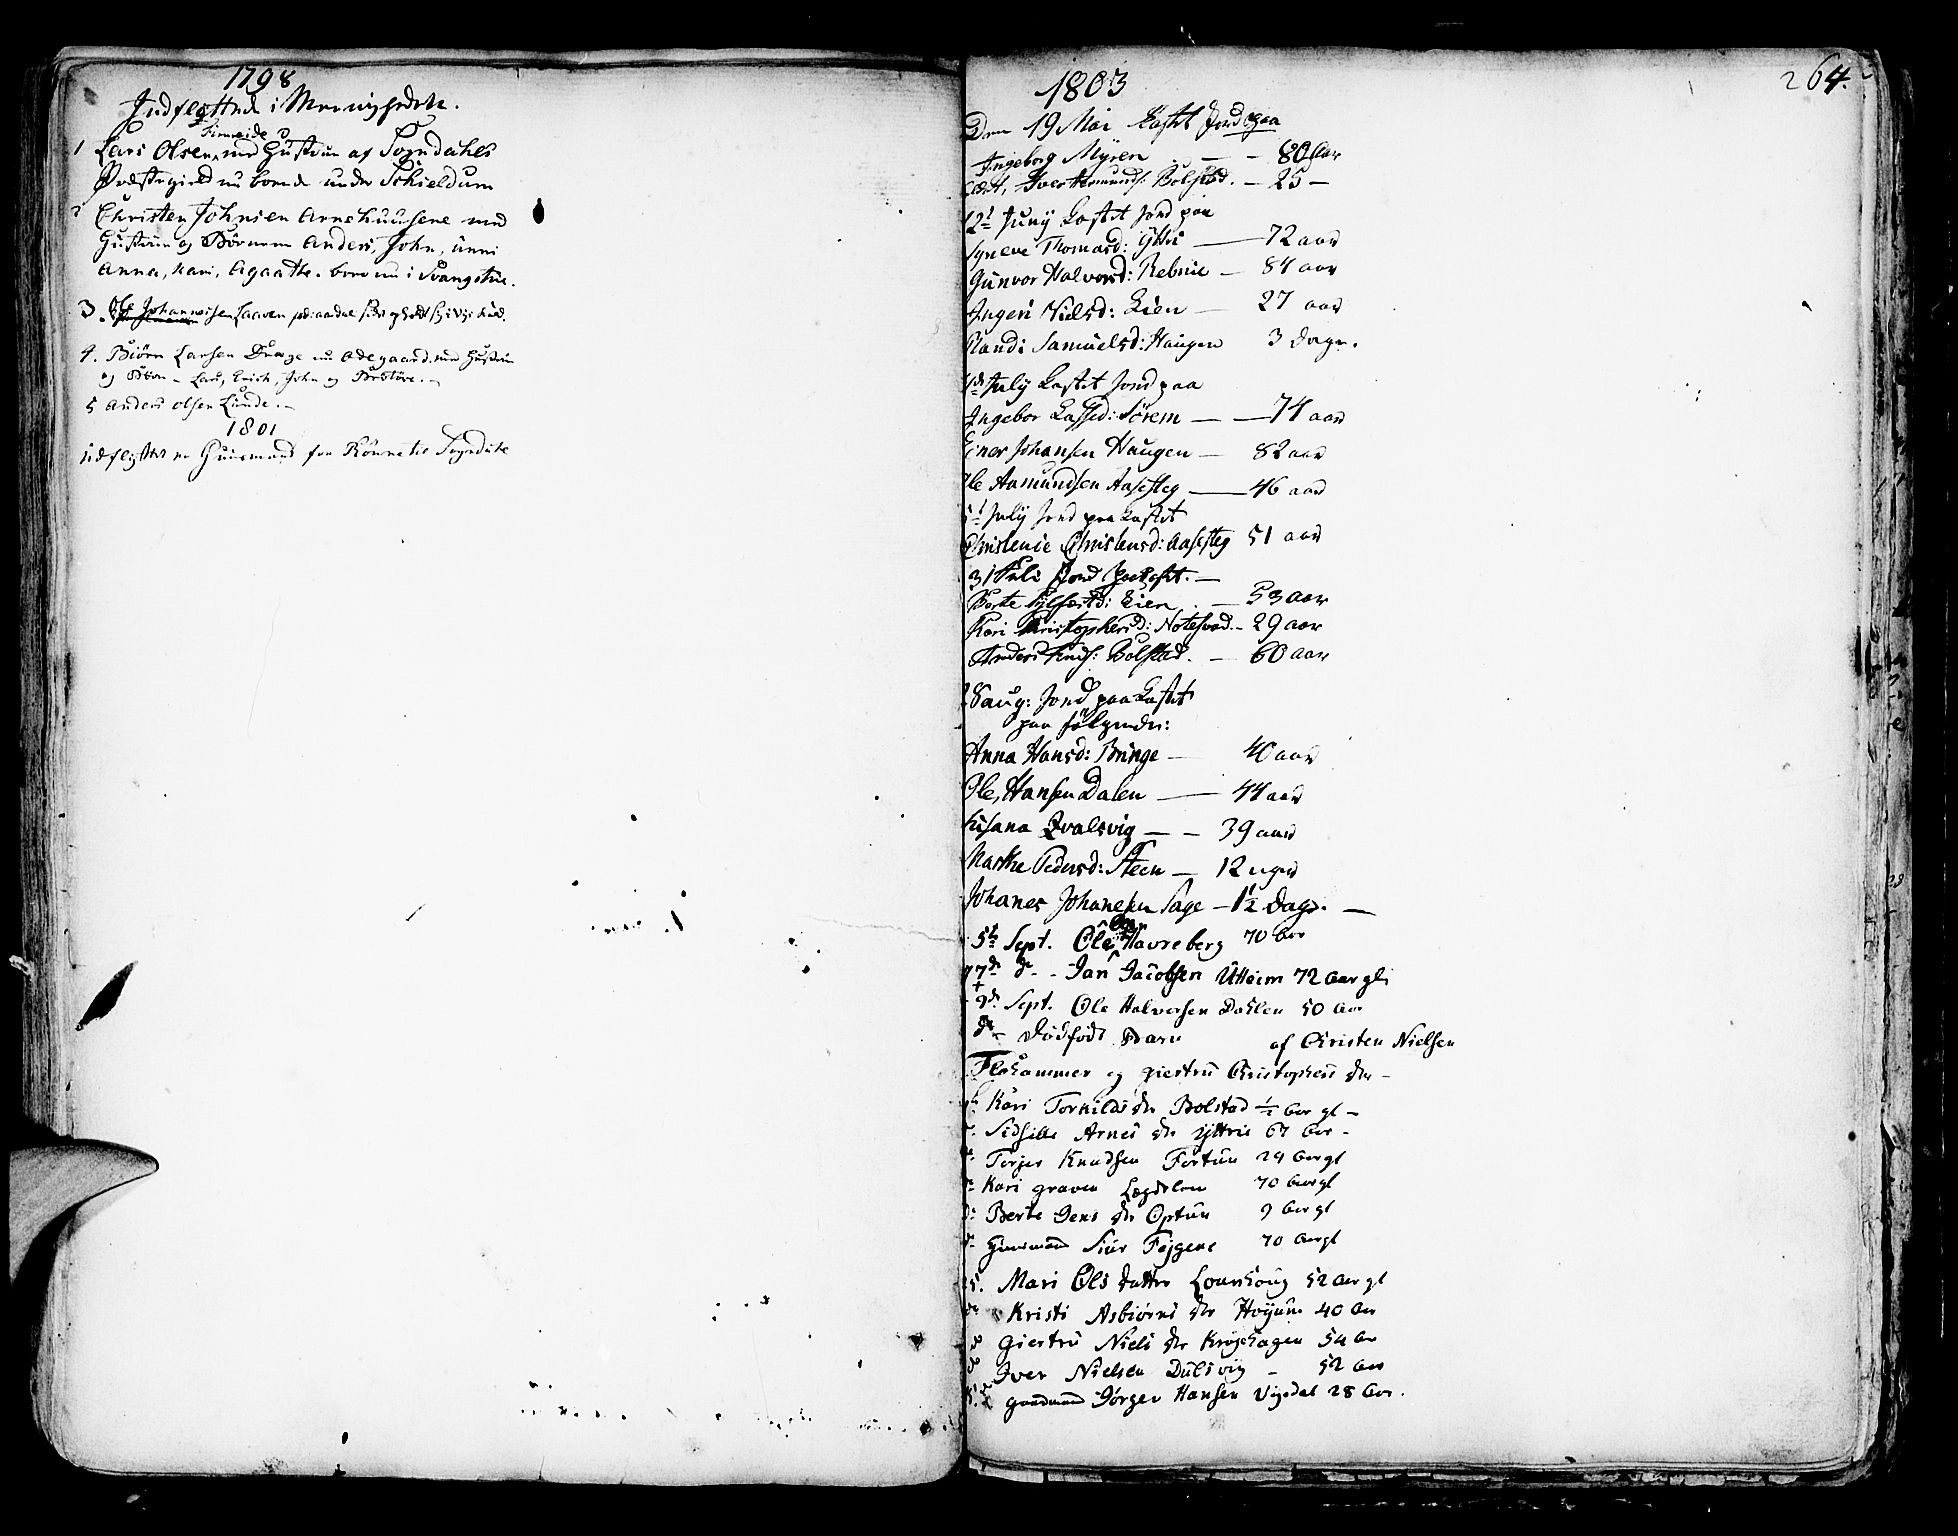 1798
Indfløttede i Menighedete.
Finneide
1 Lars Olsen, med Hustrue af Sogndahls
Præstegield nu boende under Schieldum
2 Christen Johnsen Arnehuusene med
Hustrue og Børnene Anders, John, ünni
Anna, Kari, Agaathe. boer nu i Svangstue.
3. Johannesen Laaven
4. Biörn Larsen Drage nu Ødegaard med Hustrue
og Börn - Lars, Erich, John og
5 Anders Olsen Lunde. -
1801
Udflyttet en Huusmand fra Rönne til Sogndahl
1803
264.
Den 19 Mai Kastet Jord paa
Ingeborg Myren - - 80 Aar
Iver Amunds: Bolstad. - 25 -
12t Juny Kastet Jord paa
Syneve Thomasd: Ÿttri - 72 aar
Gunvor Halvorsd: Rebnie - 84 aar
Ingeri Nielsd: Lien - 27 aar
Randi Samuelsd: Haugen 3 Dage.
July Kastet Jord paa
Ingebor Lassed: Sörem - 74 aar
Einer Johansen Haugen - 82 aar
Ole Aamundsen Aasesteg - 46 aar
July Jord paa Kastet
Christenie Christensd: Aasesteg 51 aar
31 Juli Jord paa Kast. -
Berte Sylfæstd: Lien - 53 Aar
Kari Kristophersd: Notesvad - 29 aar
Anders Knds: Bolstad. - 60 aar
Aug: Jord paa Kastet
paa følgende:
Anna Hansd: Bringe - 40 aar
Ole, Hansen Dalen - 44 aar
Susana Qvalsvig - - 39 aar
Marthe Pedersd: Steen - 12 uger
Johanes Johanesen Sage - 1½ Dage. -
5t Sept. Ole Havreberg 70 Aar
7de do - Jan Jacobsen Utteim 72 Aar gl:
9de Sept. Ole Halvorsen Dahlen 50 Aar
do Dödfödt Barn af Christen Nielsen
Flohammer og Giertru Christophers der -
Kari Torkilds der Bolstad ½ Aar gl -
Sidselle Arnes der Yttrie 67 Aar -
Torjer Knudsen Fortun 29 Aar gl
Kari Graven Lægdelem 70 Aar gl
Berte Jens der Optun 9 Aar gl
Huusmand Siur Fejgene 70 Aar gl
Mari Ols datter Lourhoug 52 Aar gl
Kristi Asbiörns der Høyum 40 Aar
Giertru Niels der Krøjehagen 54 Aar
Iver Nielsen Dulsvig - 52 Aar
Gaardmand Jörger Hansen Vigedal 28 Aar.